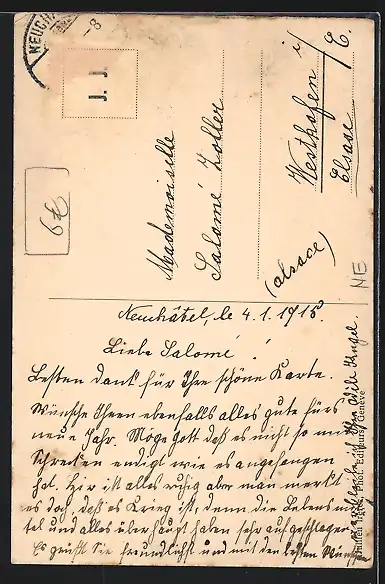 NEUCH
-8
J. J.
6 £
Mademoiselle
Salomé Zoller
Westhofen i/E.
Elsase
(alsace)
NE
Neuchâtel, le 4. 1. 1915
Liebe Salomé!
Besten Dank für Ihre schöne Karte.
Wünsche Ihnen ebenfalls alles gute fürs
neue Jahr. Möge Gott daß es nicht so mit
Schrecken endigt wie es angefangen
hat. Hier ist alles ruhig aber man merkt
es doch, daß es Krieg ist, denn die Lebensmit-
tel und alles überhaupt haben sehr aufgeschlagen.
Es grüßt Sie freundlichst und mit den besten Wünschen
Phot. Editeurs, Genève